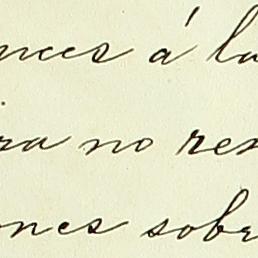 nces á la
ra no ren
ones sobre